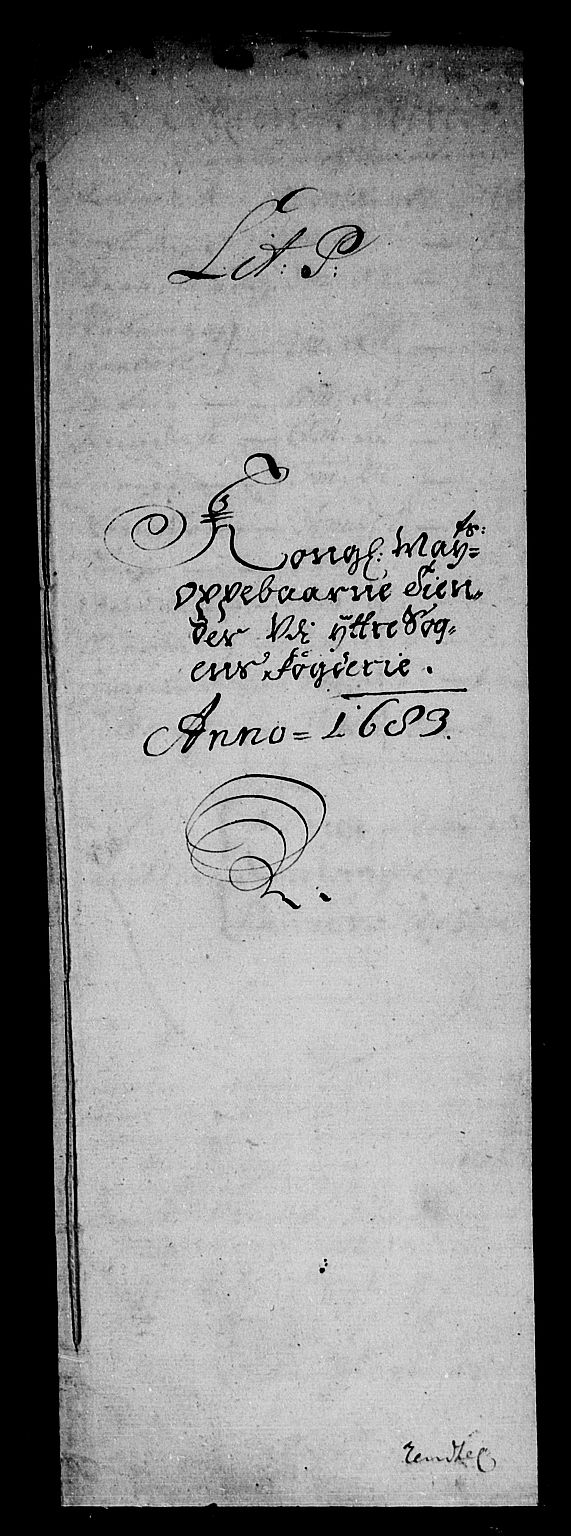 Lit: P:
Kongl: May=ts:
oppebaarne Tien-
der Vdi ÿttre Sog-
ens fögderie.
Anno = 1683.